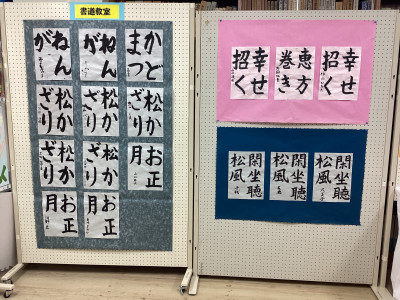 書道教室
かど
まつ
ねん
が
ねん
が
松か
ざり
松か
ざり
松か
ざり
お正
月
松か
ざり
松か
ざり
お正
月
お正
月
幸せ
招く
恵方
巻き
幸せ
招く
閑坐聴
松風
閑坐聴
松風
閑坐聴
松風